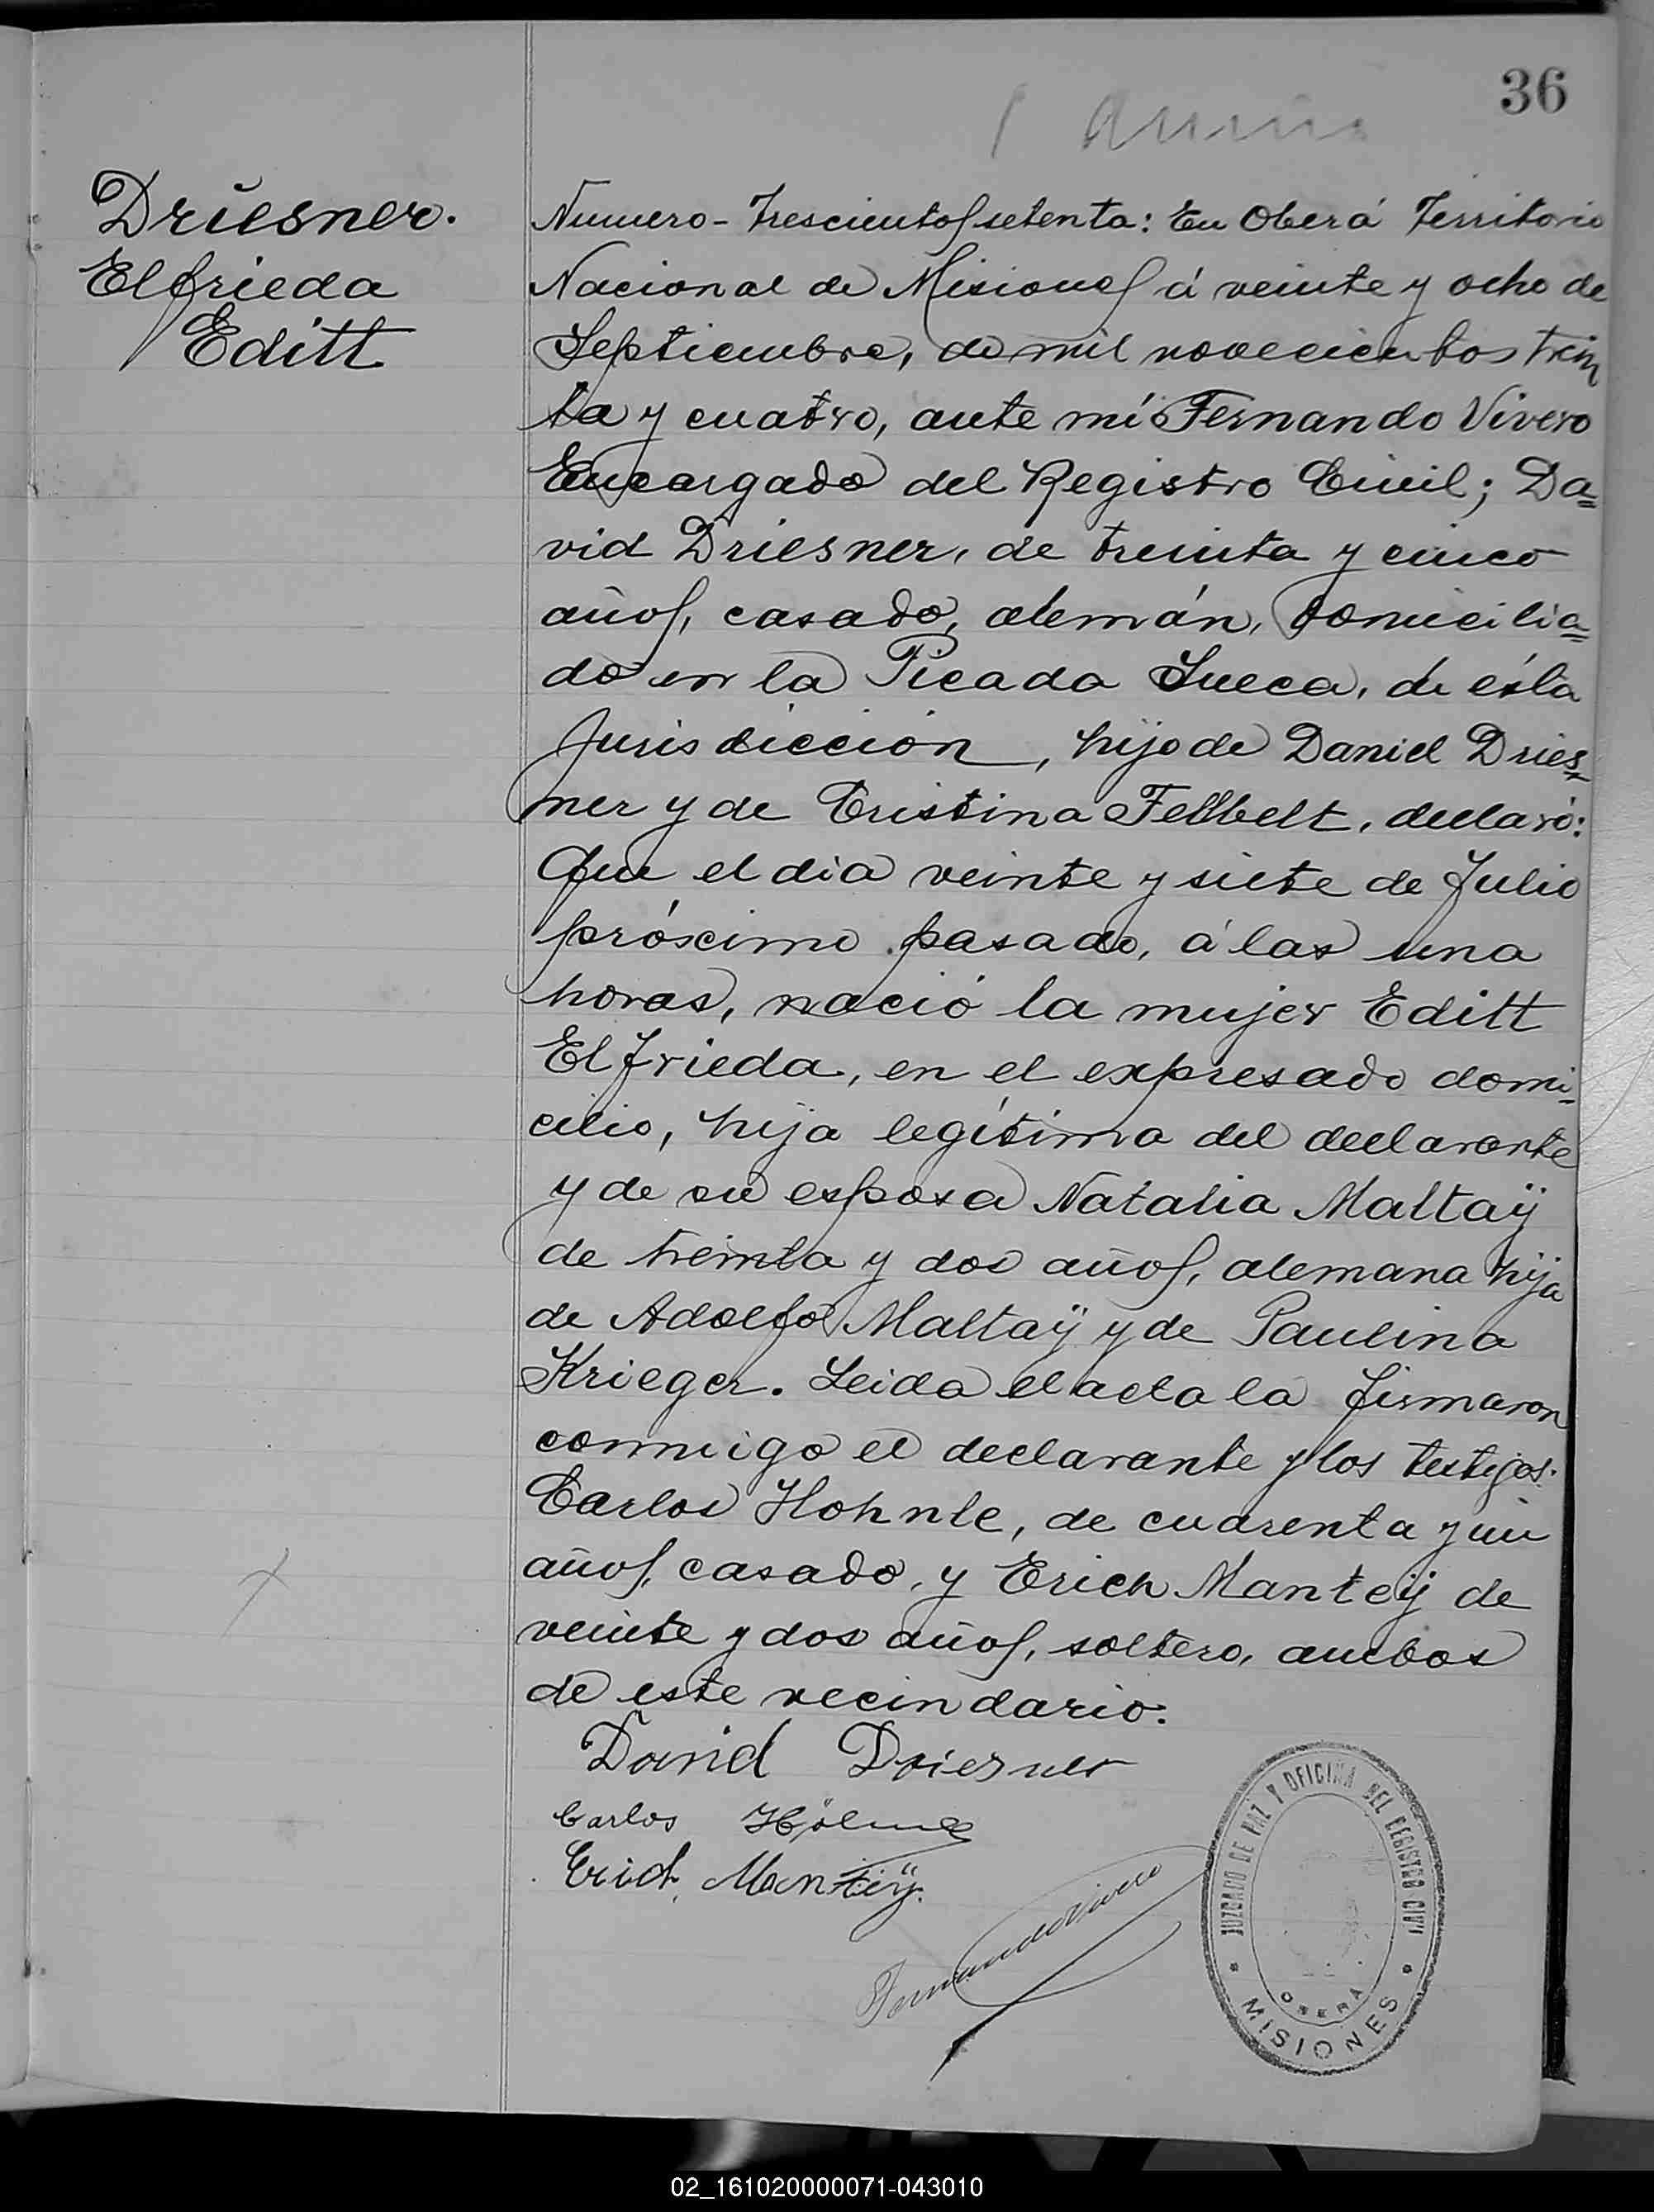 36
Driesner.
Elfrieda
Editt
Numero - Trescientos setenta: En Oberá Territorio
Nacional de Misiones á veinte y ocho de
Septiembre, de mil novecientos trein
ta y cuatro, ante mí Fernando Vivero
Encargado del Registro Civil; Da=
vid Driesner, de treinta y cinco
años, casado, alemán, domicilia=
do en la Picada Sueca, de ésta
Jurisdicción, hijo de Daniel Dries=
ner y de Cristina Fellbelt, declaró:
Que el dia veinte y siete de Julio
próximo pasado, á las una
horas, nació la mujer Editt
Elfrieda, en el expresado domi=
cilio, hija legítima del declarante
y de su esposa Natalia Maltaÿ
de treinta y dos años, alemana hija
de Adolfo Maltaÿ y de Paulina
Krieger. Leida el acta la firmaron
conmigo el declarante y los testigos:
Carlos Hohnle, de cuarenta y un
años, casado, y Erich Manteÿ de
veinte y dos años, soltero, ambos
de este vecindario.
David Driesner
Carlos
Erich Manteÿ.
Fernando Vivero
JUZGADO DE PAZ Y OFICINA DEL REGISTRO CIVIL
OBERÁ
MISIONES
02_161020000071-043010